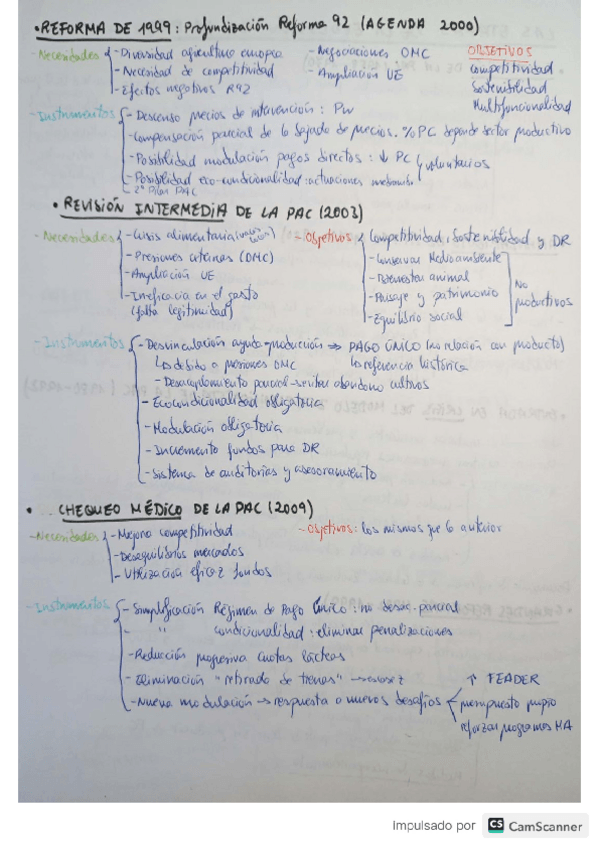 • REFORMA DE 1999: Profundización Reforma 92 (AGENDA 2000)
- Necesidades - Diversidad agricultura europea - Negociaciones OMC OBJETIVOS
- Necesidad de competitividad - Ampliación UE competitividad
- Efectos negativos R92 Sostenibilidad
Multifuncionalidad
- Instrumentos - Descenso precios de intervención: Pw
- Compensación parcial de la bajada de precios. % PC depende sector productivo
- Posibilidad modulación pagos directos: ↓ PC voluntarios
- Posibilidad eco-condicionalidad: actuaciones
- 2º Pilar PAC
• REVISIÓN INTERMEDIA DE LA PAC (2003)
- Necesidades - Crisis alimentaria - Objetivos Competitividad, Sostenibilidad y DR
- Presiones externas (OMC) - Conservar Medioambiente
- Ampliación UE - Bienestar animal No
- Ineficacia en el gasto - Paisaje y patrimonio productivos
(falta legitimidad) - Equilibrio social
- Instrumentos - Desvinculación ayuda-producción ⇒ PAGO ÚNICO (no relación con producto)
↳ debido a presiones OMC ↳ referencia histórica
- Desacoplamiento parcial-evitar abandono cultivos
- Ecocondicionalidad obligatoria
- Modulación obligatoria
- Incremento fondos para DR
- Sistema de auditorías y asesoramiento
• CHEQUEO MÉDICO DE LA PAC (2009)
- Necesidades - Mejora competitividad - Objetivos: los mismos que lo anterior
- Desequilibrios mercados
- Utilización eficaz fondos
- Instrumentos - Simplificación Régimen de Pago Único: no desac. parcial
- " condicionalidad: eliminar penalizaciones
- Reducción progresiva cuotas lácteas
- Eliminación "retirada de tierras" → escasez ↑ FEADER
- Nueva modulación → respuesta a nuevos desafíos presupuesto propio
reforzar programas MA
Impulsado por CS CamScanner